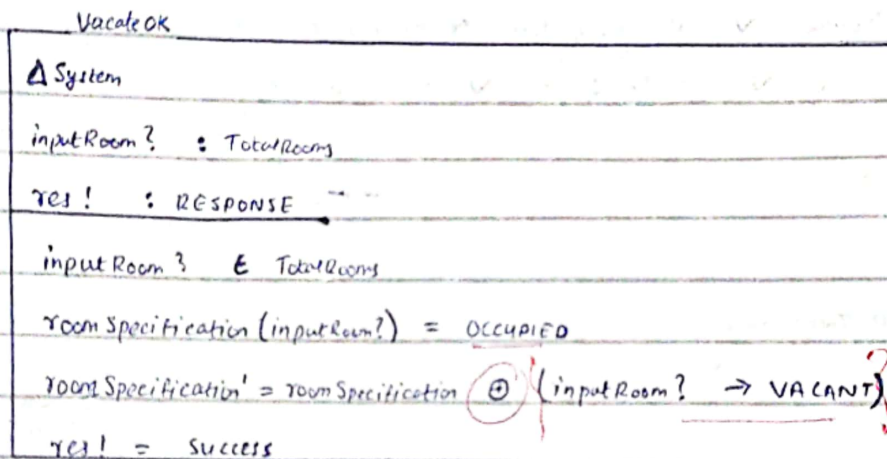 Vacate OK
Δ System
inputRoom? : TotalRooms
res! : RESPONSE
inputRoom? ∈ TotalRooms
roomSpecification (inputRoom?) = OCCUPIED
roomSpecification' = roomSpecification ⊕ (inputRoom? → VACANT)
res! = Success